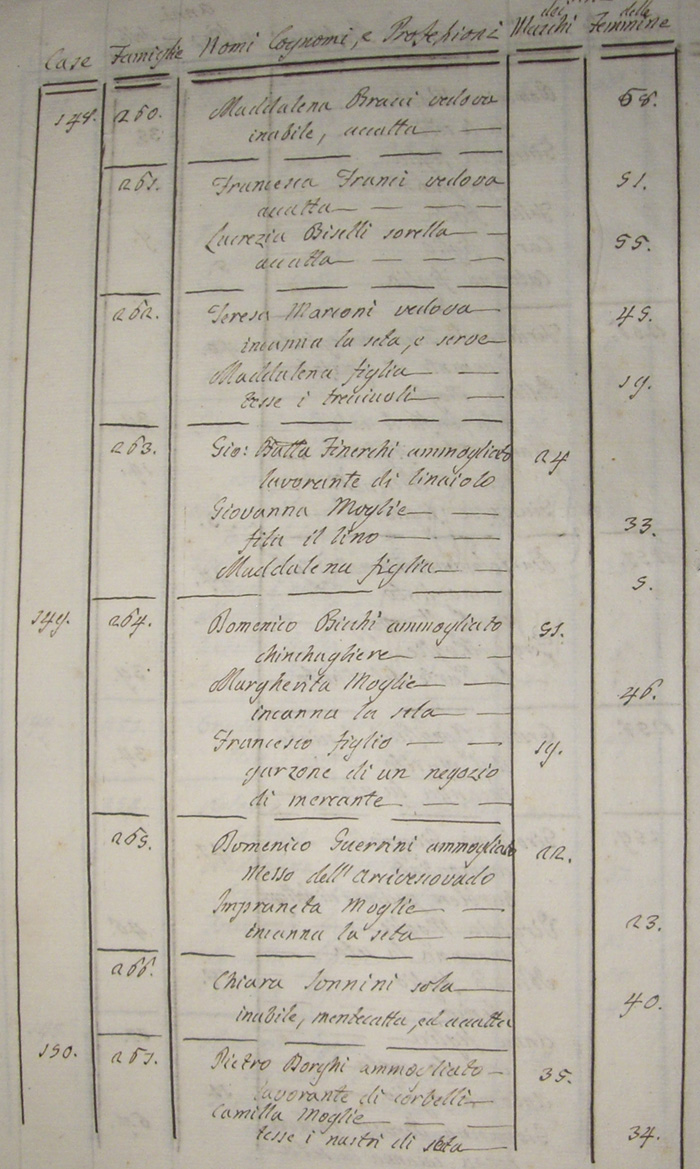 dei della
Case Famiglie Nomi Cognomi, e Professioni Maschi Femmine
148. 260. Maddalena Bracci vedova 68.
inabile, accatta
261. Francesca Franci vedova 51.
accatta
Lucrezia Biselli sorella 55.
accatta
262. Teresa Marconi vedova 45.
incanna la seta, e serve
Maddalena figlia 19.
tesse i trecciuoli
263. Gio: Batta Finerchi ammogliato 24
lavorante di linaiolo
Giovanna Moglie 33.
fila il lino
Maddalena figlia 5.
149. 264. Domenico Bicchi ammogliato 51.
chinchagliere
Margherita Moglie 46.
incanna la seta
Francesco figlio 19.
garzone di un negozio
di mercante
265. Domenico Guerrini ammogliato 22.
Messo dell'Arcivescovado
Impruneta Moglie 23.
incanna la seta
266. Chiara Sonnini sola 40.
inabile, mentecatta, ed accatta
150. 267. Pietro Borghi ammogliato 35.
lavorante di corbelli
Camilla Moglie 34.
tesse i nastri di seta